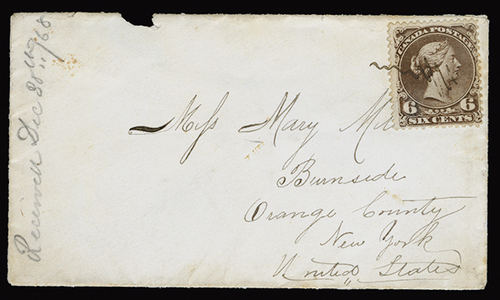 Received Dec 30th /68
CANADA POSTAGE
6 6
SIX CENTS
Miss Mary
Burnside
Orange County
New York
United States